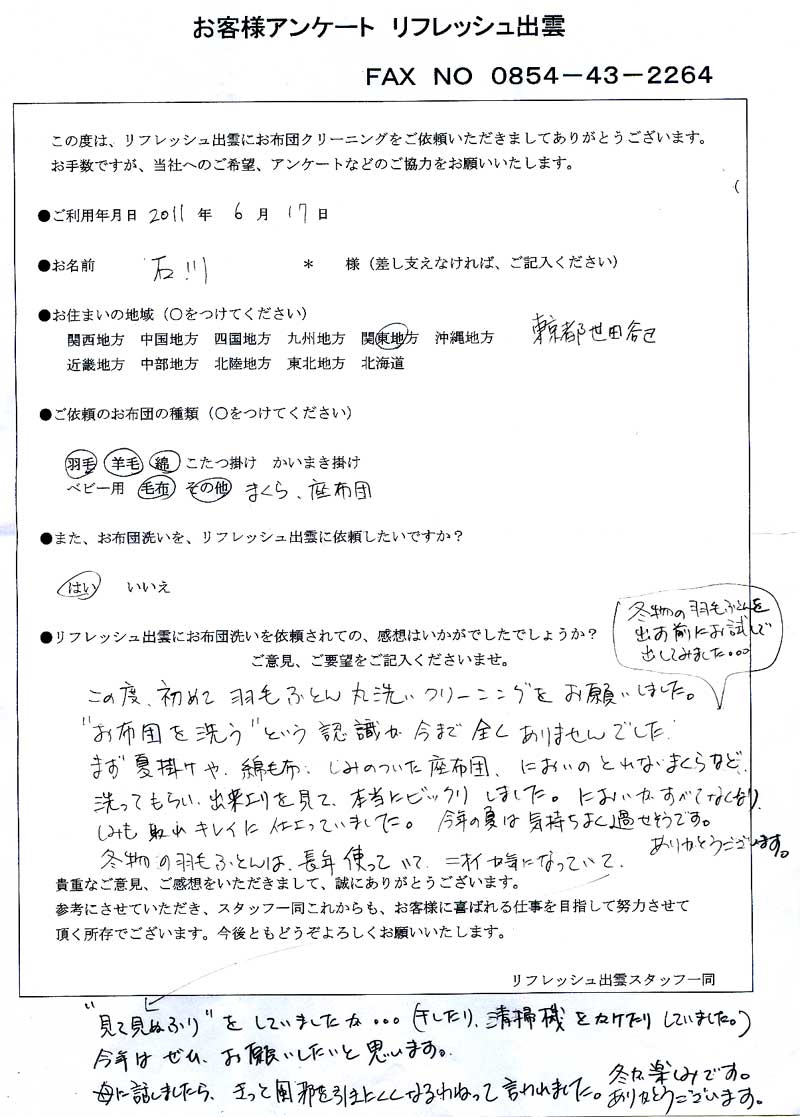 お客様アンケート リフレッシュ出雲
FAX NO 0854-43-2264
この度は、リフレッシュ出雲にお布団クリーニングをご依頼いただきましてありがとうございます。
お手数ですが、当社へのご希望、アンケートなどのご協力をお願いいたします。
●ご利用年月日 2011 年 6 月 17 日
●お名前 石川 * 様（差し支えなければ、ご記入ください）
●お住まいの地域（○をつけてください）
関西地方 中国地方 四国地方 九州地方 関東地方 沖縄地方 東京都世田谷区
近畿地方 中部地方 北陸地方 東北地方 北海道
●ご依頼のお布団の種類（○をつけてください）
羽毛 羊毛 綿 こたつ掛け かいまき掛け
ベビー用 毛布 その他 まくら、座布団
●また、お布団洗いを、リフレッシュ出雲に依頼したいですか？
はい いいえ
●リフレッシュ出雲にお布団洗いを依頼されての、感想はいかがでしたでしょうか？
ご意見、ご要望をご記入くださいませ。
冬物の羽毛ふとんを
出す前にお試しで
出してみました・・・
この度、初めて羽毛ふとん丸洗いクリーニングをお願いしました。
"お布団を洗う"という認識が今まで全くありませんでした。
まず夏掛けや、綿毛布、しみのついた座布団、においのとれないまくらなど、
洗ってもらい、出来上りを見て、本当にビックリしました。においがすべてなくなり、
しみも取れキレイに仕上っていました。今年の夏は気持ちよく過せそうです。
ありがとうございます。
冬物の羽毛ふとんは、長年使っていて、ニオイが気になっていて、
貴重なご意見、ご感想をいただきまして、誠にありがとうございます。
参考にさせていただき、スタッフ一同これからも、お客様に喜ばれる仕事を目指して努力させて
頂く所存でございます。今後ともどうぞよろしくお願いいたします。
リフレッシュ出雲スタッフ一同
"見て見ぬふり"をしていましたが・・・（干したり、清掃機をかけたりしていました。）
今年はぜひ、お願いしたいと思います。
母に話しましたら、きっと風邪を引きにくくなるわねって言われました。冬が楽しみです。
ありがとうございます。